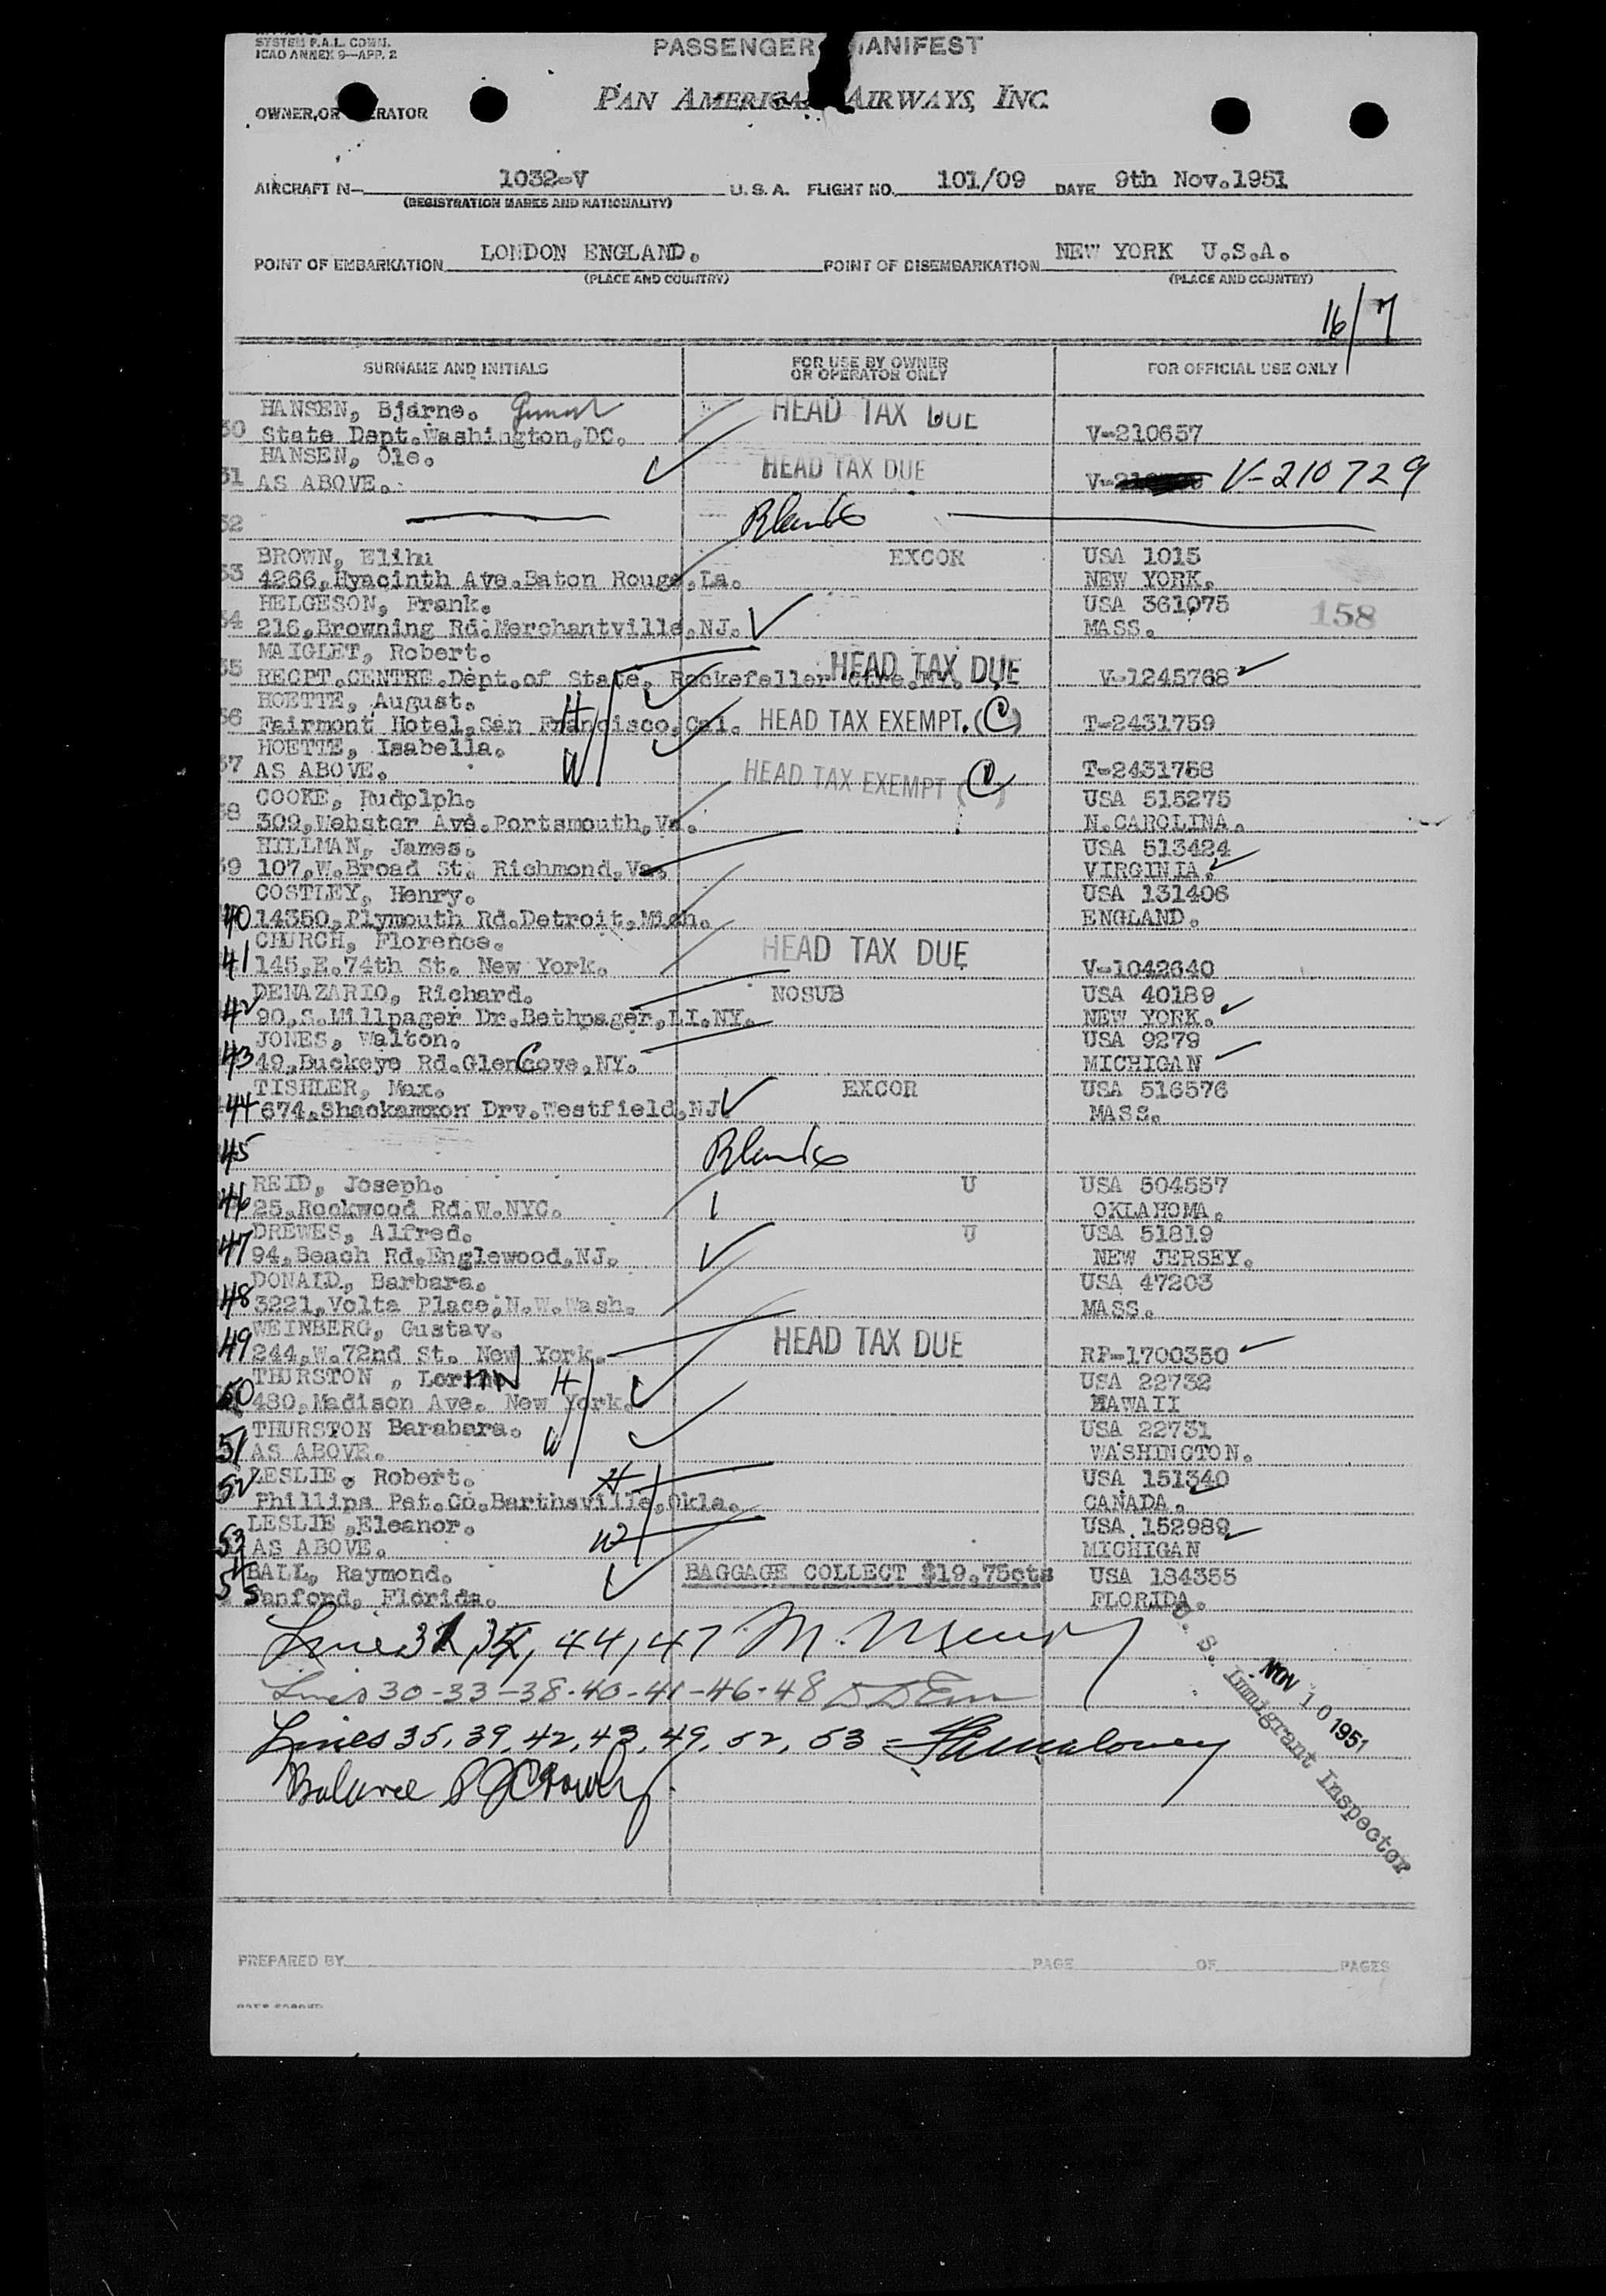 SYSTEM F.A.L. COMM.
ICAO ANNEX 9—APP. 2
PASSENGER MANIFEST
PAN AMERICAN AIRWAYS, INC.
OWNER, OR OPERATOR
AIRCRAFT N— 1032-V U. S. A. FLIGHT NO. 101/09 DATE 9th Nov.1951
(REGISTRATION MARKS AND NATIONALITY)
POINT OF EMBARKATION LONDON ENGLAND. POINT OF DISEMBARKATION NEW YORK U.S.A.
(PLACE AND COUNTRY) (PLACE AND COUNTRY)
16/7
SURNAME AND INITIALS FOR USE BY OWNER OR OPERATOR ONLY FOR OFFICIAL USE ONLY
HANSEN, Bjarne. HEAD TAX DUE
30 State Dept.Washington,DC. V-210657
HANSEN, Ole. HEAD TAX DUE
31 AS ABOVE. V- V-210729
32 Blank
BROWN, Elihu EXCOR USA 1015
33 4266,Hyacinth Ave.Baton Rouge,La. NEW YORK.
HELGESON, Frank. USA 361075
34 216,Browning Rd.Merchantville,NJ. MASS. 158
MAIGLET, Robert. HEAD TAX DUE
35 RECPT.CENTRE.Dept.of State. Rockefeller Ctre. V-1245768
HOETTE, August. H
36 Fairmont Hotel,San Francisco,Cal. HEAD TAX EXEMPT. (C) T-2431759
HOETTE, Isabella. W
37 AS ABOVE. HEAD TAX EXEMPT (C) T-2431758
COOKE, Rudolph. USA 515275
38 309,Webster Ave.Portsmouth,Va. N.CAROLINA.
HILLMAN, James. USA 513424
39 107,W.Broad St. Richmond.Va. VIRGINIA.
COSTLEY, Henry. USA 131406
40 14350,Plymouth Rd.Detroit,Mich. ENGLAND.
CHURCH, Florence. HEAD TAX DUE
41 145,E.74th St. New York. V-1042640
DENAZARIO, Richard. NOSUB USA 40189
42 90,S.Millpager Dr.Bethpager,LI.NY. NEW YORK.
JONES, Walton. USA 9279
43 49,Buckeye Rd.GlenCove,NY. MICHIGAN
TISHLER, Max. EXCOR USA 516576
44 674,Shackamxon Drv.Westfield,NJ. MASS.
45 Blank
REID, Joseph. U USA 504557
46 25,Rockwood Rd.W.NYC. OKLAHOMA.
DREWES, Alfred. U USA 51819
47 94,Beach Rd.Englewood.NJ. NEW JERSEY.
DONALD, Barbara. USA 47203
48 3221,Volta Place,N.W.Wash. MASS.
WEINBERG, Gustav. HEAD TAX DUE
49 244,W.72nd St. New York. RP-1700350
THURSTON , H USA 22732
50 480,Madison Ave. New York. HAWAII
THURSTON Barabara. W USA 22731
51 AS ABOVE. WASHINGTON.
52 LESLIE, Robert. H USA 151340
Phillips Pet.Co.Barthsville,Okla. CANADA.
LESLIE ,Eleanor. W USA 152989
53 AS ABOVE. MICHIGAN
54 BALL, Raymond. BAGGAGE COLLECT $19.75cts USA 184355
Sanford, Florida. FLORIDA.
44, 47
Lines 30-33-38-40-41-46-48
Lines 35, 39, 42, 43, 49, 52, 53
Balance
U. S. Immigrant Inspector
NOV 10 1951
PREPARED BY PAGE OF PAGES